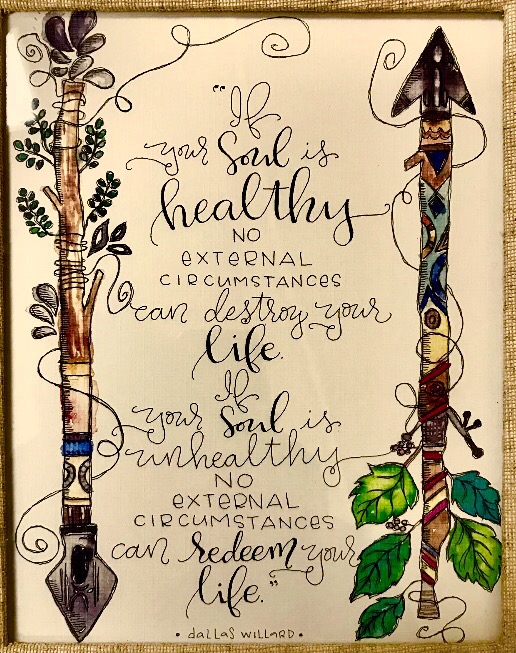 "If
your Soul is
healthy
NO
EXTERNAL
CIRCUMSTANCES
can destroy your
life.
If
your Soul is
unhealthy
NO
EXTERNAL
CIRCUMSTANCES
can redeem your
life."
• dallas willard •